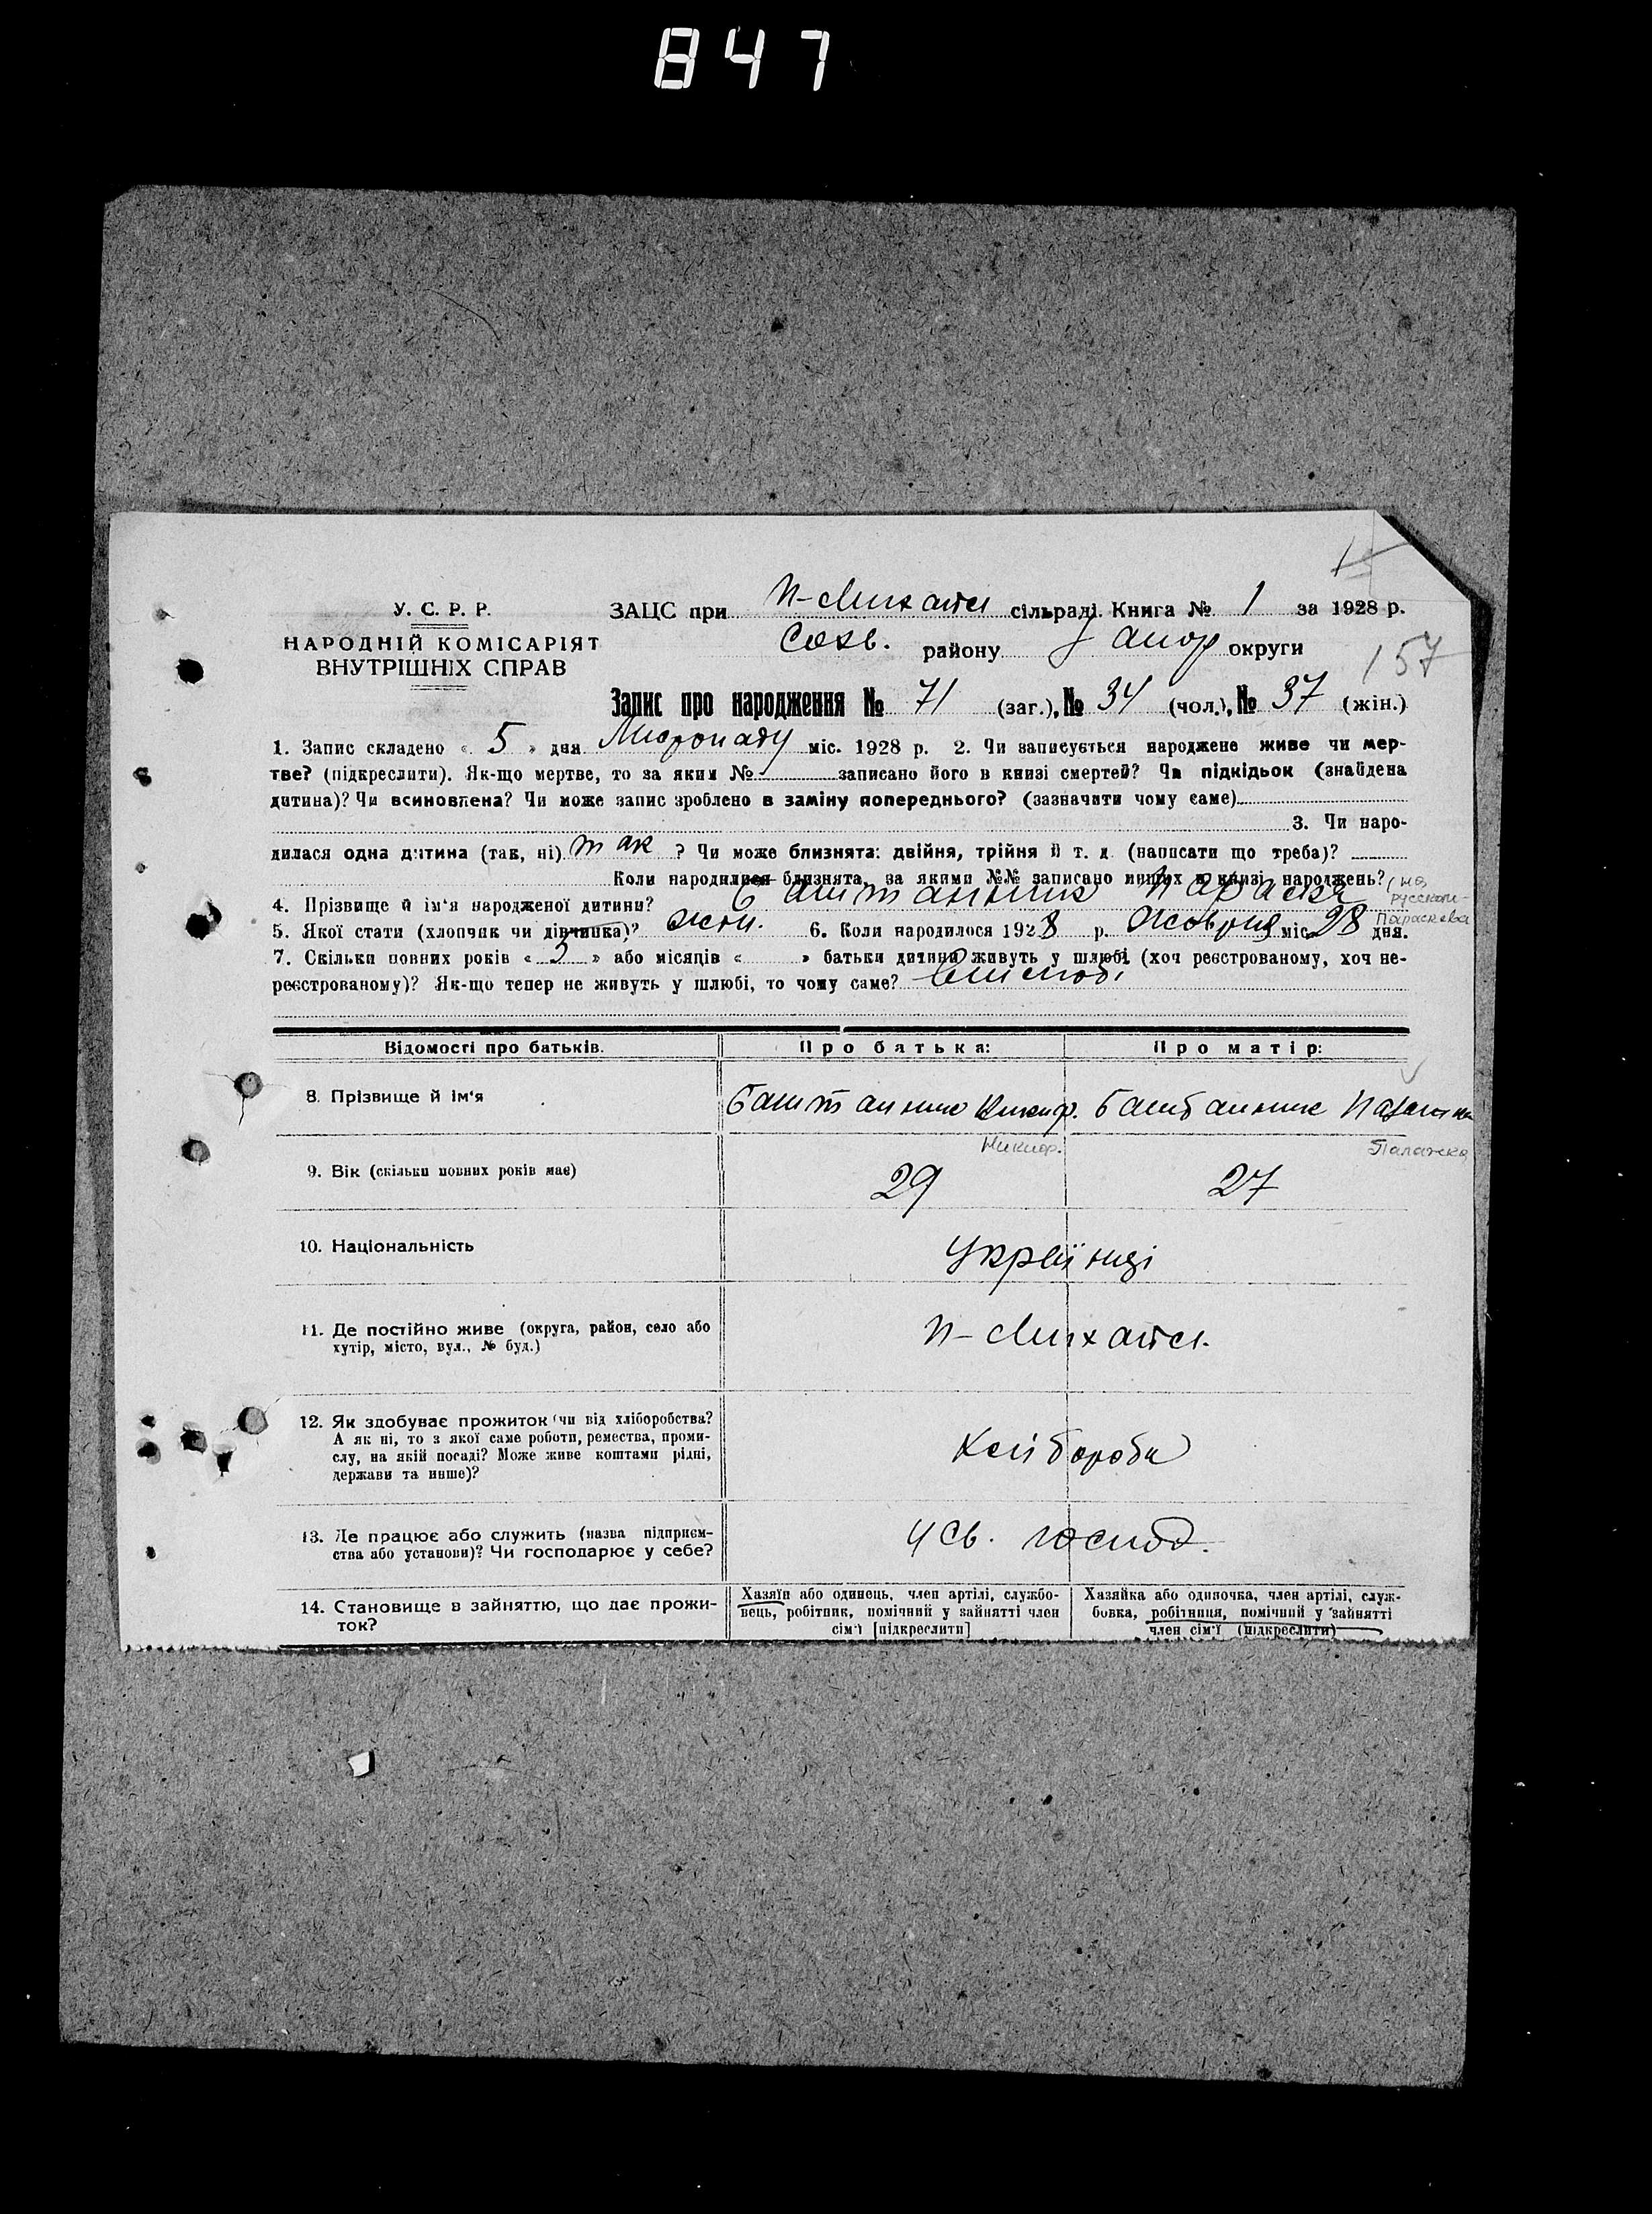 847
У. С. Р. Р.
НАРОДНІЙ КОМІСАРІЯТ
ВНУТРІШНІХ СПРАВ
ЗАЦС при П-Михайл сільраді. Книга № 1 за 1928 р.
Софів. району Запор округи
157
Запис про народження № 71 (заг.), № 34 (чол.), № 37 (жін.)
1. Запис складено « 5 » дня Листопаду міс. 1928 р. 2. Чи записується народжене живе чи мер-
тве? (підкреслити). Як-що мертве, то за яким № записано його в книзі смертей? Чи підкідьок (знайдена
дитина)? Чи всиновлена? Чи може запис зроблено в заміну попереднього? (зазначити чому саме)
3. Чи наро-
дилася одна дитина (так, ні) так ? Чи може близнята: двійня, трійня й т. д. (написати що треба)?
Коли народилися близнята, за якими №№ записано инших в книзі народжень?
4. Прізвище й ім'я народженої дитини? Баштанник Параска (на русском - Параскева
5. Якої стати (хлопчик чи дівчинка)? жін. 6. Коли народилося 1928 р. Жовтня міс. 28 дня.
7. Скільки повних років « 5 » або місяців « » батьки дитини живуть у шлюбі (хоч реєстрованому, хоч не-
реєстрованому)? Як-що тепер не живуть у шлюбі, то чому саме?
Відомості про батьків.
Про батька:
Про матір:
8. Прізвище й ім'я
Баштанник Никиф. Баштанник
Никиф.
Палажка
9. Вік (скільки повних років має)
29
27
10. Національність
Українці
11. Де постійно живе (округа, район, село або
хутір, місто, вул., № буд.)
П-Михайл.
12. Як здобуває прожиток (чи від хліборобства?
А як ні, то з якої саме роботи, ремества, проми-
слу, на якій посаді? Може живе коштами рідні,
держави та инше)?
Хлібороби
13. Де працює або служить (назва підприєм-
ства або установи)? Чи господарює у себе?
У св. господ.
14. Становище в зайняттю, що дає прожи-
ток?
Хазяїн або одинець, член артілі, службо-
вець, робітник, помічний у зайнятті член
сім'ї [підкреслити]
Хазяйка або одиночка, член артілі, служ-
бовка, робітниця, помічний у зайнятті
член сім'ї (підкреслити)